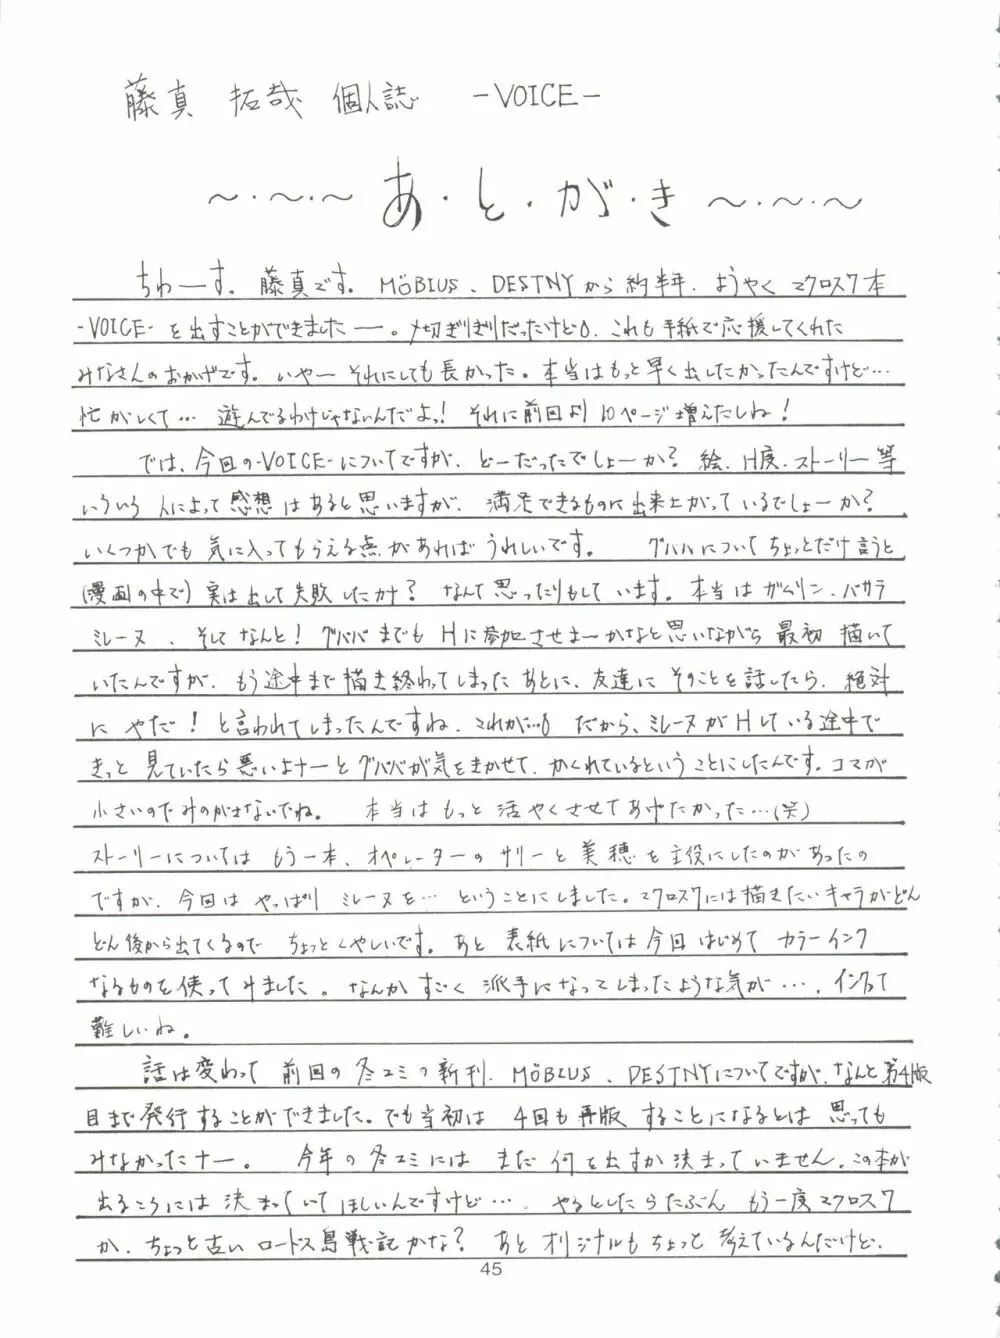 藤真 拓哉 個人誌 -VOICE-
～・～・～ あ・と・が・き ～・～・～
ちわーす。藤真です。MÖBIUS、DESTNYから約半年、ようやくマクロス7本
-VOICE- を出すことができましたー。〆切ぎりぎりだったけど。これも手紙で応援してくれた
みなさんのおかげです。いやー それにしても長かった。本当はもっと早く出したかったんですけど…
忙がしくて… 遊んでるわけじゃないんだよっ! それに前回より10ページ増えたしね!
では、今回の-VOICE-についてですが、どーだったでしょーか? 絵、H度、ストーリー等
いろいろ 人によって感想はあると思いますが、満足できるものに出来上がっているでしょーか?
いくつかでも 気に入ってもらえる点があれば うれしいです。 グババについてちょっとだけ言うと
(漫画の中で) 実は出して失敗したか? なんて思ったりもしています。本当はガムリン、バサラ
ミレーヌ、そしてなんと! グババまでも Hに参加させまーかなと思いながら 最初 描いて
いたんですが、もう途中まで描き終わってしまったあとに、友達に そのことを話したら、絶対
に やだ! と言われてしまったんですね、これが…。 だから、ミレーヌがHしている途中で
きっと 見ていたら悪いよナーとグババが気をきかせて、かくれているということにしたんです。コマが
小さいのでみのがさないでね。 本当はもっと 活やくさせてあげたかった…(笑)
ストーリーについては もう一本、オペレーターの サリーと美穂を主役にしたのがあったの
ですが、今回は やっぱり ミレーヌを… ということにしました。マクロス7には描きたいキャラがどん
どん後から出てくるので ちょっとくやしいです。あと 表紙については今回 はじめて カラーインク
なるものを使ってみました。なんか すごく 派手になってしまったような気が…、インクって
難しいね。
話は変わって 前回の冬コミの新刊、MÖBIUS、DESTNYについてですが、なんと第4版
目まで発行することができました。でも当初は 4回も再版 することになるとは 思っても
みなかったナー。 今年の冬コミには まだ 何を出すか決まっていません。この本が
出るころには 決まっていてほしいんですけど…、やるとしたらたぶん もう一度マクロス7
か、ちょっと古い ロードス島戦記かな? あと オリジナルもちょっと 考えているんだけど、
45